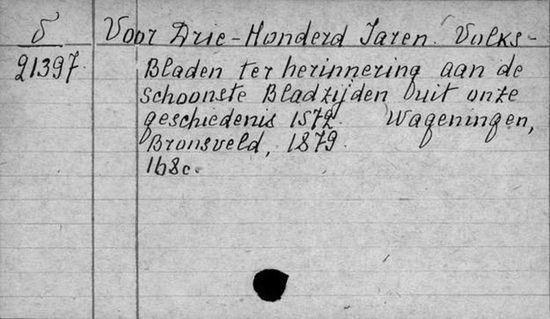 V Voor Drie-Honderd Jaren. Volks-
21397. Bladen ter herinnering aan de
schoonste Bladzijden uit onze
geschiedenis 1572. Wageningen,
Bronsveld, 1879.
168c.